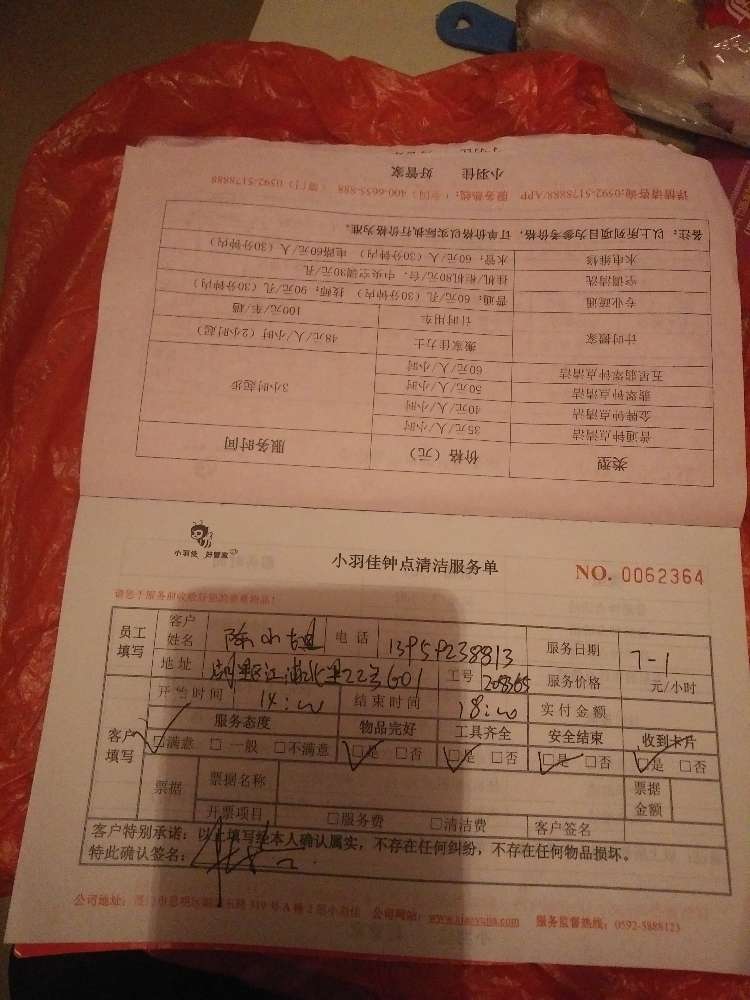 小羽佳 好管家
详情请咨询:0592-5178888/APP 服务热线:(全国) 400-6655-888 (厦门) 0592-5178888
备注: 以上所列项目为参考价格, 订单价格以实际执行价格为准。
水电维修 水管: 60元/人 (30分钟内) 电路60元/人 (30分钟内)
空调清洗 挂机/柜机80元/台, 中央空调30元/孔
专业疏通 普通: 60元/孔 (30分钟内) 技师: 90元/孔 (30分钟内)
计时搬家 计时用车 100元/车/趟
搬家佳力士 48元/人/小时 (2小时起)
五星翡翠钟点清洁 60元/人/小时
翡翠钟点清洁 50元/人/小时
金牌钟点清洁 40元/人/小时
普通钟点清洁 35元/人/小时 3小时起步
类型 价格 (元) 服务时间
小羽佳 好管家
小羽佳钟点清洁服务单
NO. 0062364
员工填写 客户姓名 陈小 电话 13959238813 服务日期 7-1
地址 湖里区江浦北里22号601 工号 服务价格 元/小时
客户填写 开始时间 14:00 结束时间 18:00 实付金额
服务态度 物品完好 工具齐全 安全结束 收到卡片
□满意 □一般 □不满意 □是 □否 □是 □否 □是 □否 □是 □否
票据 票据名称 票据金额
开票项目 □服务费 □清洁费 客户签名
客户特别承诺: 以上填写经本人确认属实, 不存在任何纠纷, 不存在任何物品损坏。
特此确认签名:
公司地址: 厦门市思明区 319号A栋2层小羽佳 公司网站: www.xiaoyujia.com 服务监督热线: 0592-5888123